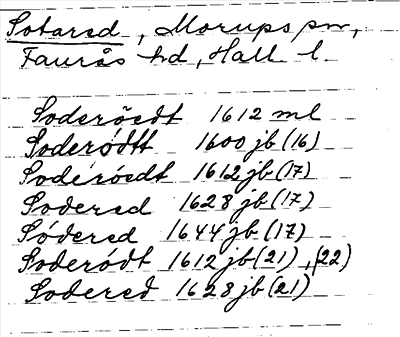 Sotared, Morups sn,
Faurås hd, Hall l.
Soderöedt 1612 ml
Soderódtt 1600 jb (16)
Soderóedt 1612 jb (17)
Sodered 1628 jb (17)
Södered 1644 jb (17)
Soderódt 1612 jb (21), (22)
Sodered 1628 jb (21)